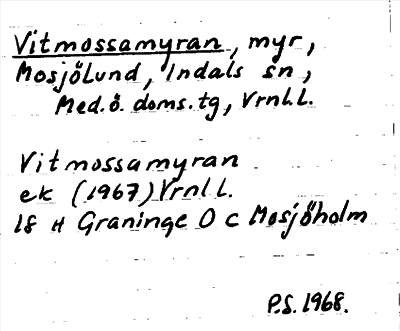 Vitmossamyran, myr,
Mosjölund, Indals sn,
Med.ö. doms.tg, Vrnl.L.
Vitmossamyran
ek (1967) Vrnl L.
18 H Graninge O c Mosjöholm
P.S. 1968.